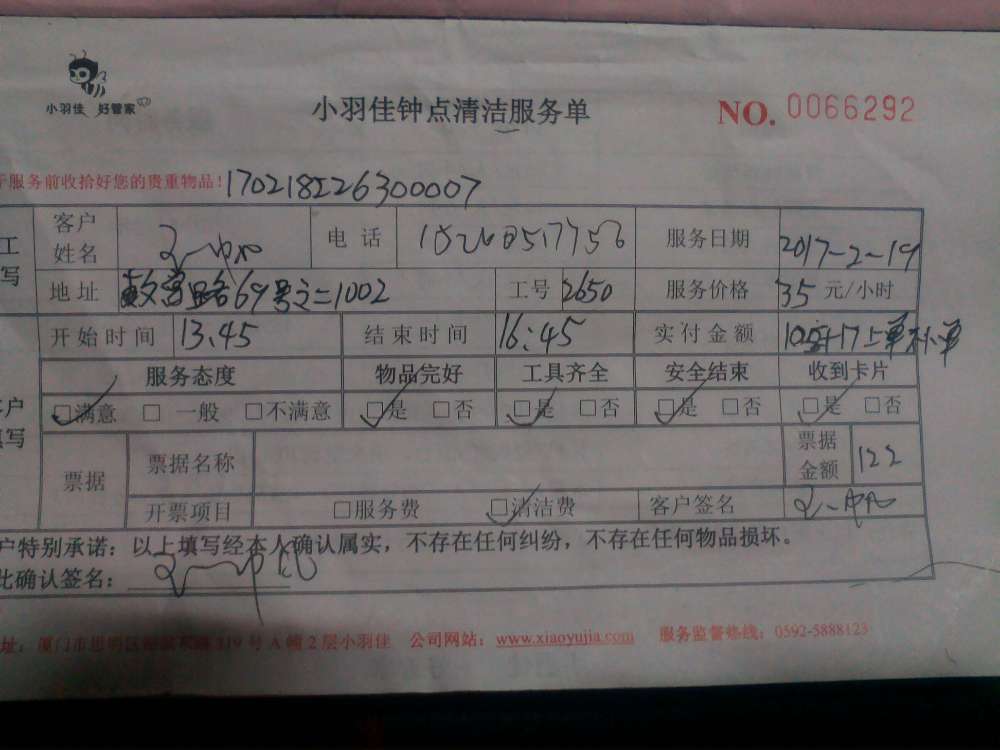 小羽佳 好管家
小羽佳钟点清洁服务单
NO. 0066292
服务前收拾好您的贵重物品！
客户姓名 电话 服务日期 2017-2-19
地址 69号之二1002 工号 2650 服务价格 35 元/小时
开始时间 13.45 结束时间 16:45 实付金额
服务态度 物品完好 工具齐全 安全结束 收到卡片
□满意 □一般 □不满意 □是 □否 □是 □否 □是 □否 □是 □否
票据 票据名称 票据金额 122
开票项目 □服务费 □清洁费 客户签名
户特别承诺：以上填写经本人确认属实，不存在任何纠纷，不存在任何物品损坏。
此确认签名：
址：厦门市思明区 319号A幢2层小羽佳 公司网站：www.xiaoyujia.com 服务监督热线：0592-5888123